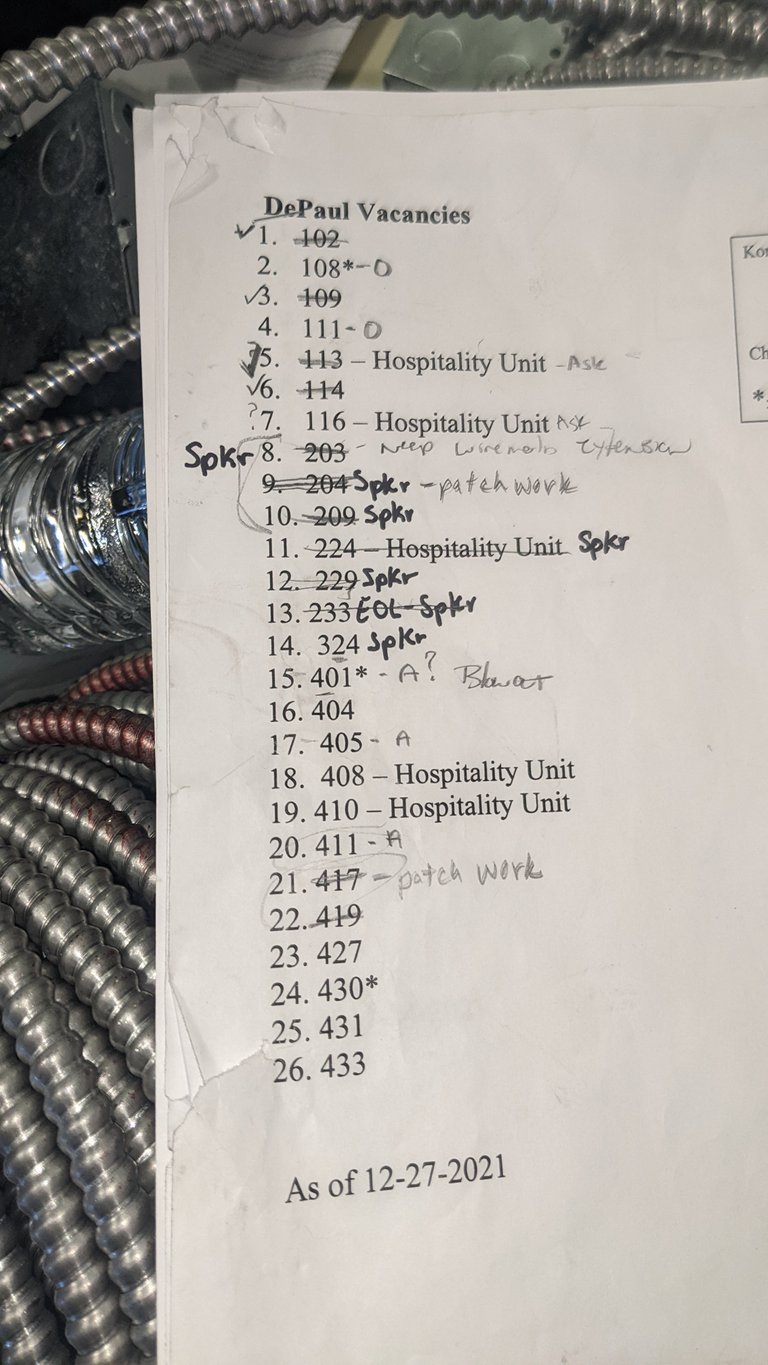 DePaul Vacancies
✓ 1. 102
2. 108* - O
✓ 3. 109
4. 111 - O
? 5. 113 – Hospitality Unit - Ask
✓ 6. 114
? 7. 116 – Hospitality Unit Ask
Spkr 8. 203 - Need wiremold extension
9. 204 Spkr - patch work
10. 209 Spkr
11. 224 – Hospitality Unit Spkr
12. 229 Spkr
13. 233 EOL - Spkr
14. 324 Spkr
15. 401* - A?
16. 404
17. 405 - A
18. 408 – Hospitality Unit
19. 410 – Hospitality Unit
20. 411 - A
21. 417 - patch work
22. 419
23. 427
24. 430*
25. 431
26. 433
As of 12-27-2021
Ch
*